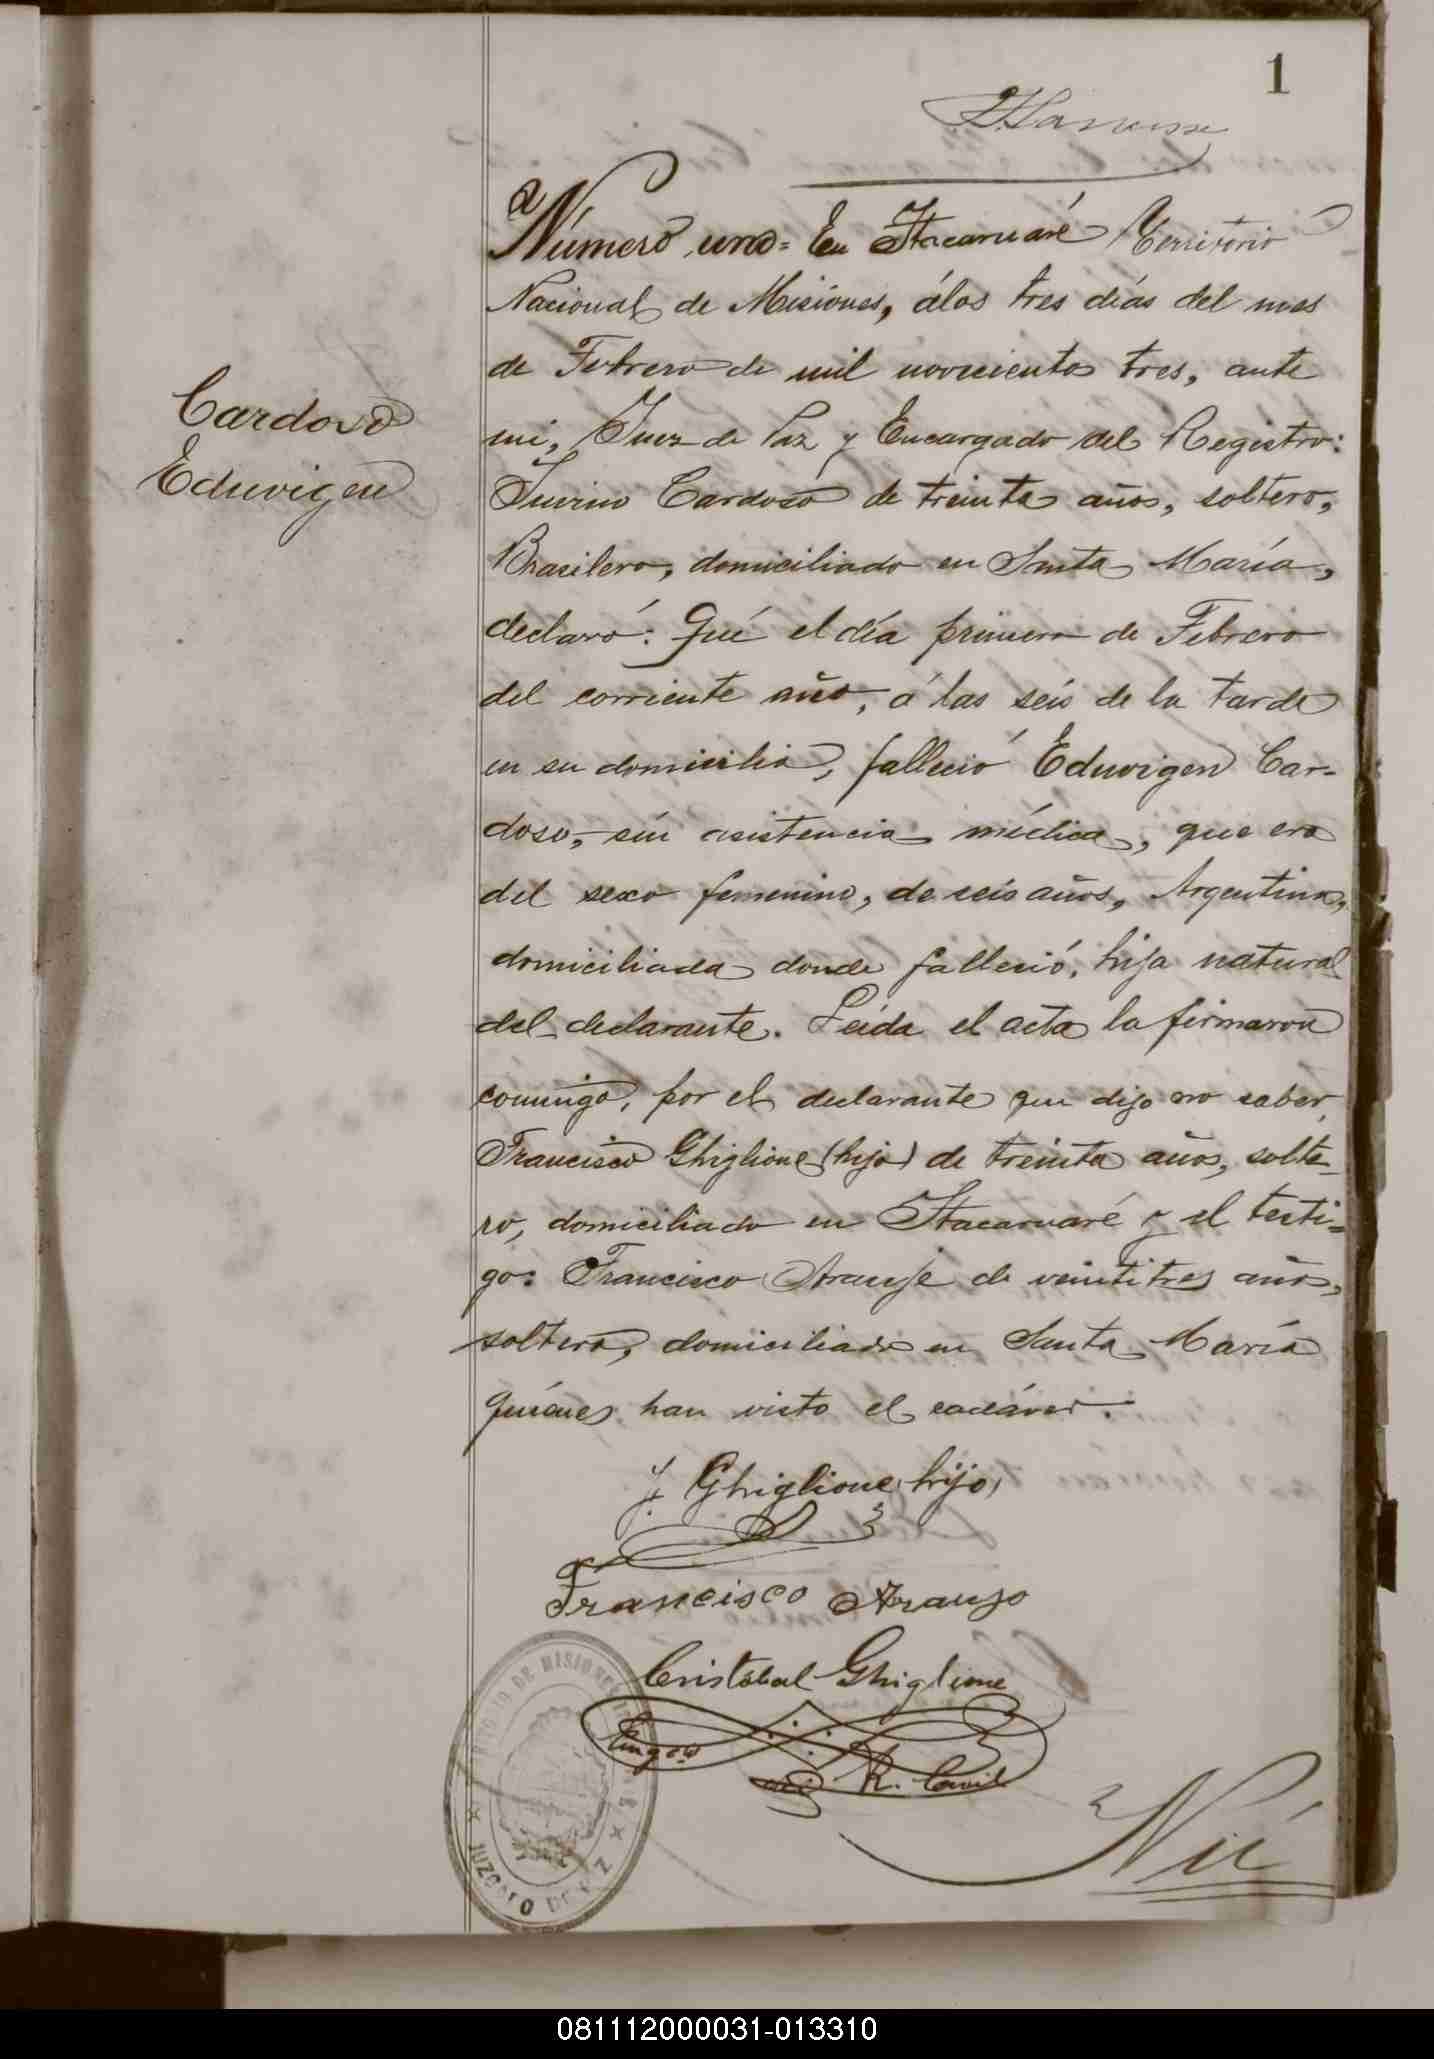 1
Número uno= En Itacaruaré Territorio
Nacional de Misiones, á los tres días del mes
de Febrero de mil novecientos tres, ante
mi, Juez de Paz y Encargado del Registro:
Cardoso de treinta años, soltero,
Brasilero, domiciliado en Santa María,
declaró: Qué el día primero de Febrero
del corriente año, á las seis de la tarde
en su domicilio, falleció Eduvigen Car-
doso, sin asistencia médica, que era
del sexo femenino, de seis años, Argentina,
domiciliada donde falleció, hija natural
del declarante. Leída el acta la firmaron
conmigo, por el declarante que dijo no saber,
Francisco Ghiglione (hijo) de treinta años, solte-
ro, domiciliado en Itacaruaré y el testi-
go: Francisco Araujo de veintitres años,
soltero, domiciliado en Santa María
quiénes han visto el cadáver.
Cardoso
Eduvigen
Ghiglione hijo
Francisco Araujo
Cristóbal Ghiglione
R. Civil
TERRITORIO DE MISIONES
JUZGADO DE PAZ
081112000031-013310